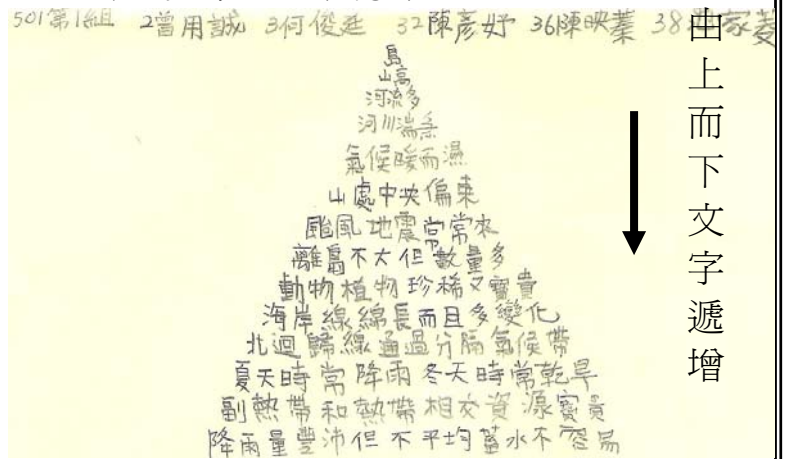 501第1組 2曾用誠 3何俊廷 32陳彥妤 36陳映蓁 38 家菱
島
山高
河流多
河川湍急
氣候暖而濕
山處中央偏東
颱風地震常常來
離島不大但數量多
動物植物珍稀又寶貴
海岸線綿長而且多變化
北迴歸線通過分隔氣候帶
夏天時常降雨冬天時常乾旱
副熱帶和熱帶相交資源寶貴
降雨量豐沛但不平均蓄水不容易
由上而下文字遞增